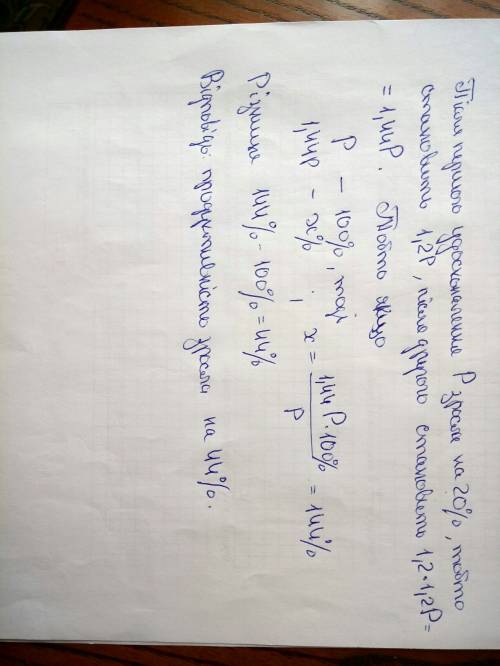 Після першого удосконалення P зросла на 20%, тобто
становить 1,2P, після другого становить 1,2·1,2P=
=1,44P. Тобто якщо
P — 100%, тоді
1,44P — x% ; x = 1,44P·100% / P = 144%
Різниця 144% - 100% = 44%
Відповідь: продуктивність зросла на 44%.